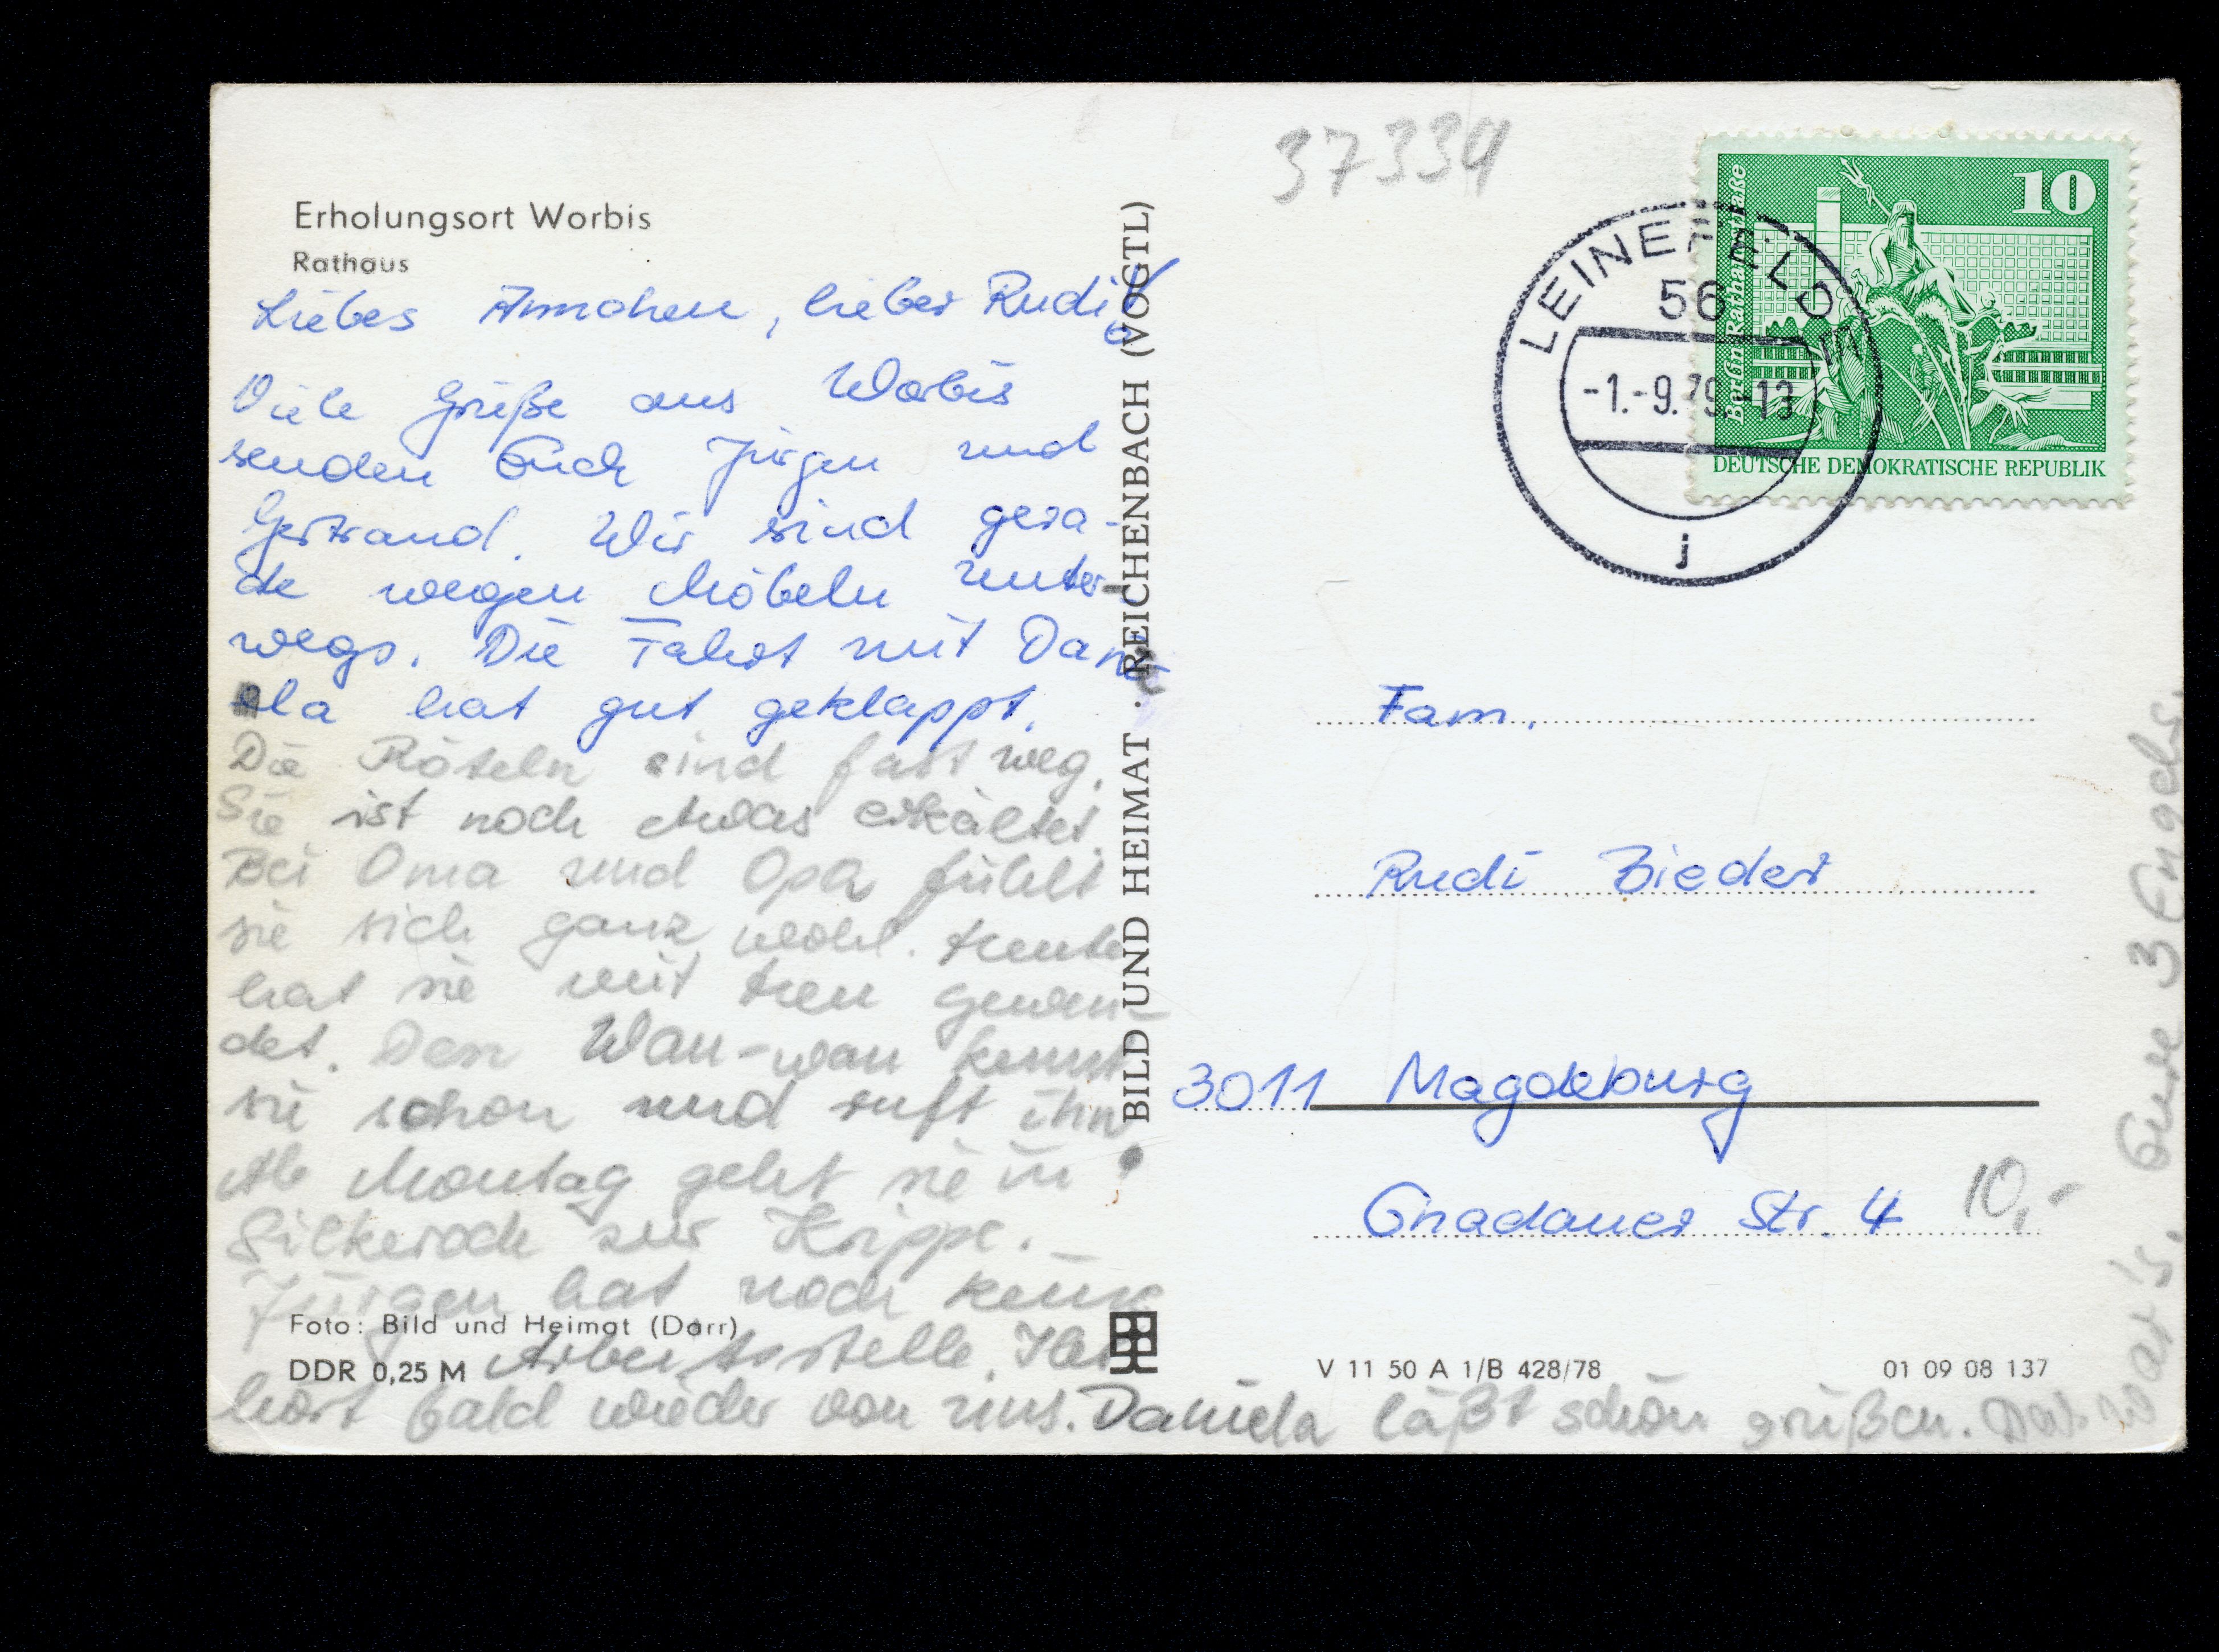 Erholungsort Worbis
Rathaus
Liebes Ännchen, lieber Rudi!
Viele Grüße aus Worbis
senden Euch Jürgen und
Gertraud. Wir sind gera-
de wegen Möbeln unter-
wegs. Die Fahrt mit Dani-
ela hat gut geklappt.
Die Röteln sind fast weg.
Sie ist noch etwas erkältet.
Bei Oma und Opa fühlt
sie sich ganz wohl. Heute
hat sie mit Heu gewen-
det. Den Wau-wau kennt
sie schon und ruft ihn
Ab Montag geht sie in
Silkerode zur Krippe.
Jürgen hat noch keine
Arbeitsstelle. Ihr
hört bald wieder von uns. Daniela läßt schön grüßen. Das
war's. Eure 3 Engels.
Foto: Bild und Heimat (Darr)
DDR 0,25 M
BILD UND HEIMAT · REICHENBACH (VOGTL)
37334
10
Berlin Rathausstraße
DEUTSCHE DEMOKRATISCHE REPUBLIK
LEINEFELDE
56
-1.-9.79.-13
j
Fam.
Rudi Bieder
3011 Magdeburg
Gnadauer Str. 4
10,-
V 11 50 A 1/B 428/78
01 09 08 137